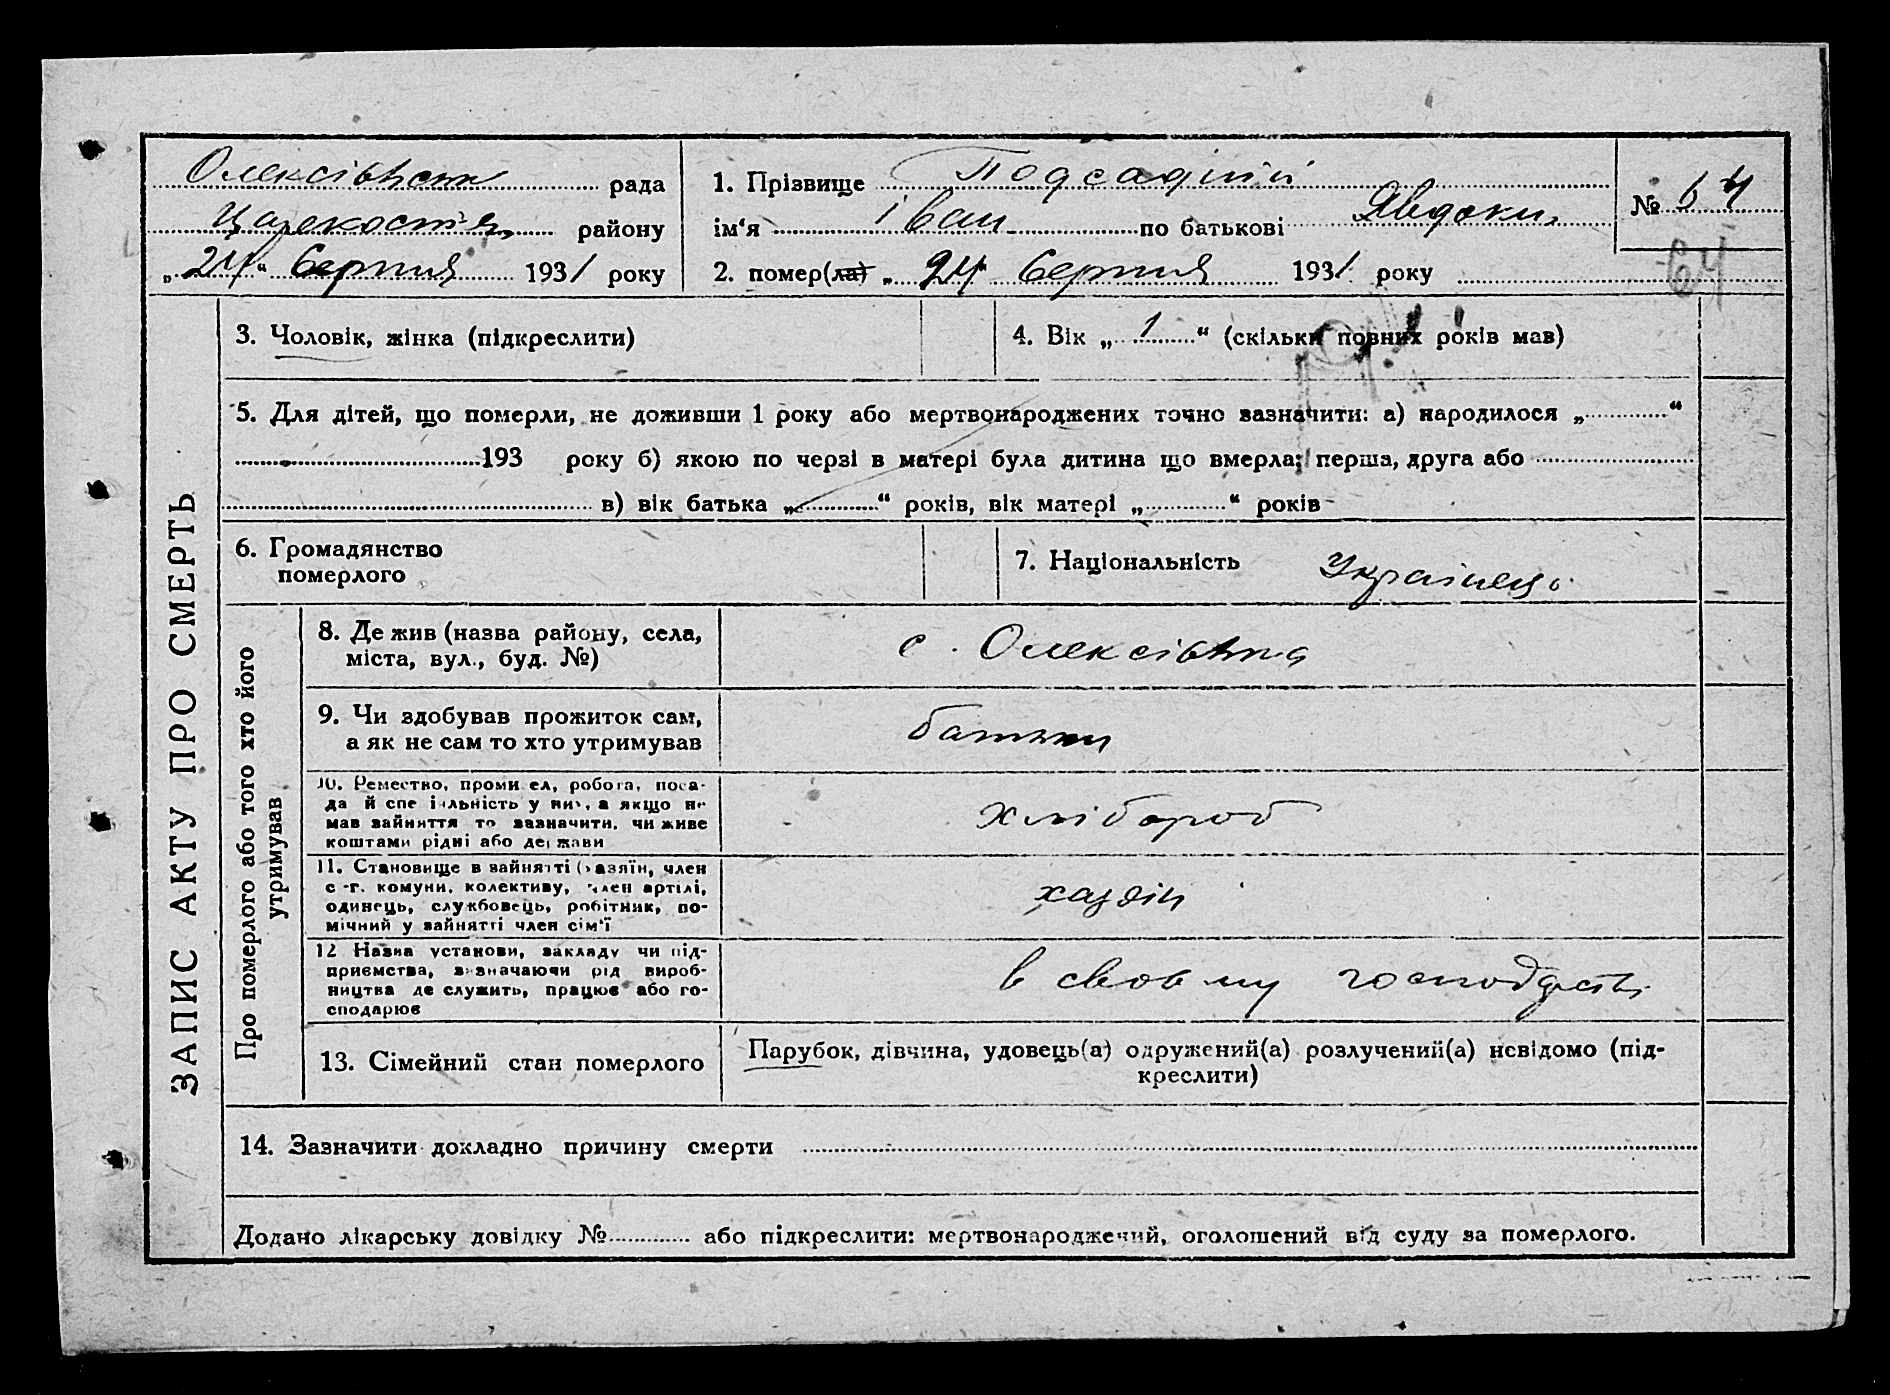 Олексівська рада
району
„24“ Серпня 1931 року
1. Прізвище Подсадній
ім'я Іван по батькові Явдоким
№ 64
64
2. помер(ла) „24“ Серпня 1931 року
3. Чоловік, жінка (підкреслити)
4. Вік „1“ (скільки повних років мав)
5. Для дітей, що померли, не доживши 1 року або мертвонароджених точно зазначити: а) народилося „ “
193 року б) якою по черзі в матері була дитина що вмерла; перша, друга або
в) вік батька „ “ років, вік матері „ “ років
6. Громадянство
померлого
7. Національність Українець
ЗАПИС АКТУ ПРО СМЕРТЬ
Про померлого або того хто його
утримував
8. Де жив (назва району, села,
міста, вул., буд. №)
с. Олексівка
9. Чи здобував прожиток сам,
а як не сам то хто утримував
батьки
10. Ремество, промисел, робота, поса-
да й спеціяльність у них, а якщо не
мав зайняття то зазначити, чи живе
коштами рідні або держави
хлібороб
11. Становище в зайнятті (хазяїн, член
с.-г. комуни, колективу, член артілі,
одинець, службовець, робітник, по-
мічний у зайнятті член сім'ї
хазяїн
12 Назва установи, закладу чи під-
приємства, зазначаючи рід вироб-
ництва де служить, працює або го-
сподарює
в своему господарстві
13. Сімейний стан померлого
Парубок, дівчина, удовець(а) одружений(а) розлучений(а) невідомо (під-
креслити)
14. Зазначити докладно причину смерти
Додано лікарську довідку № або підкреслити: мертвонароджений, оголошений від суду за померлого.